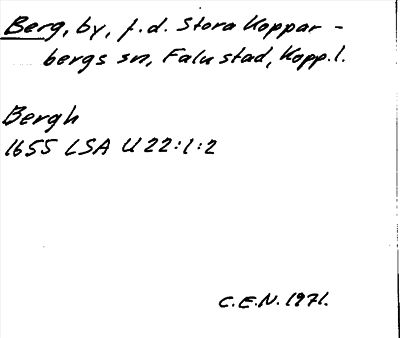 Berg, by, f.d. Stora Koppar-
bergs sn, Falu stad, Kopp.l.
Bergh
1655 LSA U 22:1:2
C.E.N. 1971.